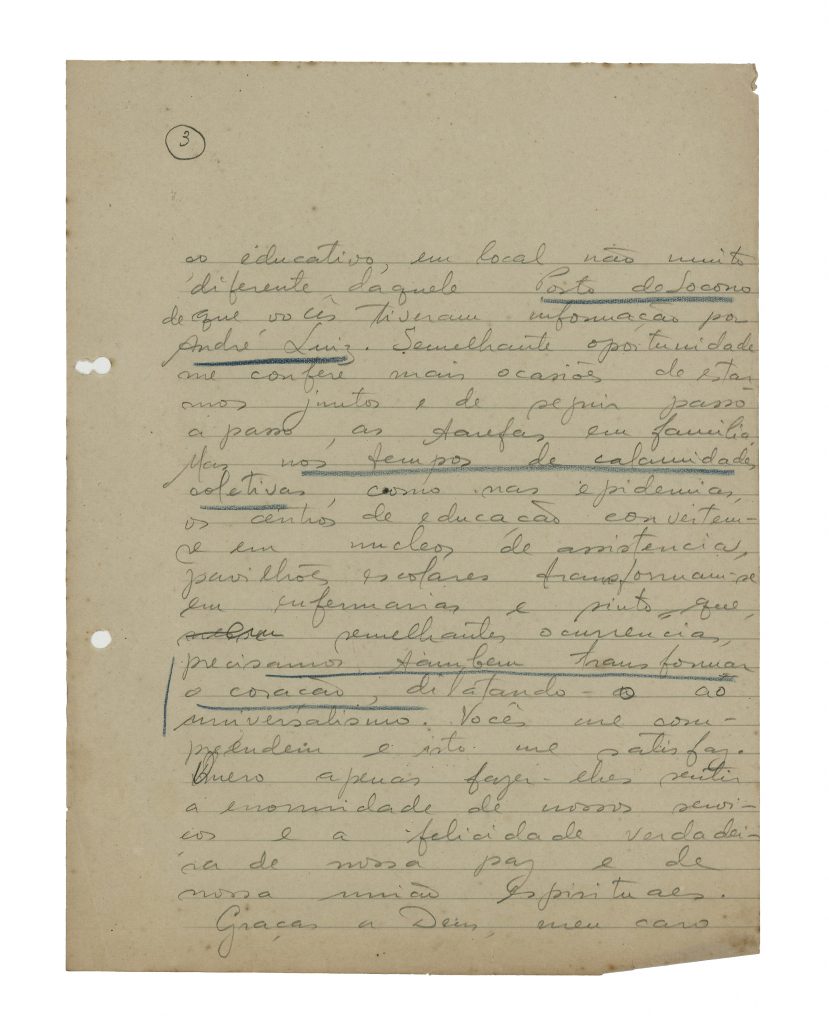 3
ço educativo, em local não muito
diferente daquele Posto de Socorro
de que vocês tiveram informação por
André Luiz. Semelhante oportunidade
me confere mais ocasiões de estar
mos juntos e de seguir passo
a passo, as tarefas em familia.
Mas nos tempos de calamidades
coletivas, como nas epidemias,
os centros de educação convertem-
se em nucleos de assistencia,
pavilhões escolares transformam-se
em enfermarias e sinto que,
semelhantes ocurrencias,
precisamos tambem transformar
o coração, dilatando-o ao
universalismo. Vocês me com-
preendem e isto me satisfaz.
Quero apenas fazer-lhes sentir
a enormidade de nossos servi-
ços e a felicidade verdadei-
ra de nossa paz e de
nossa união espirituaes.
Graças a Deus, meu caro